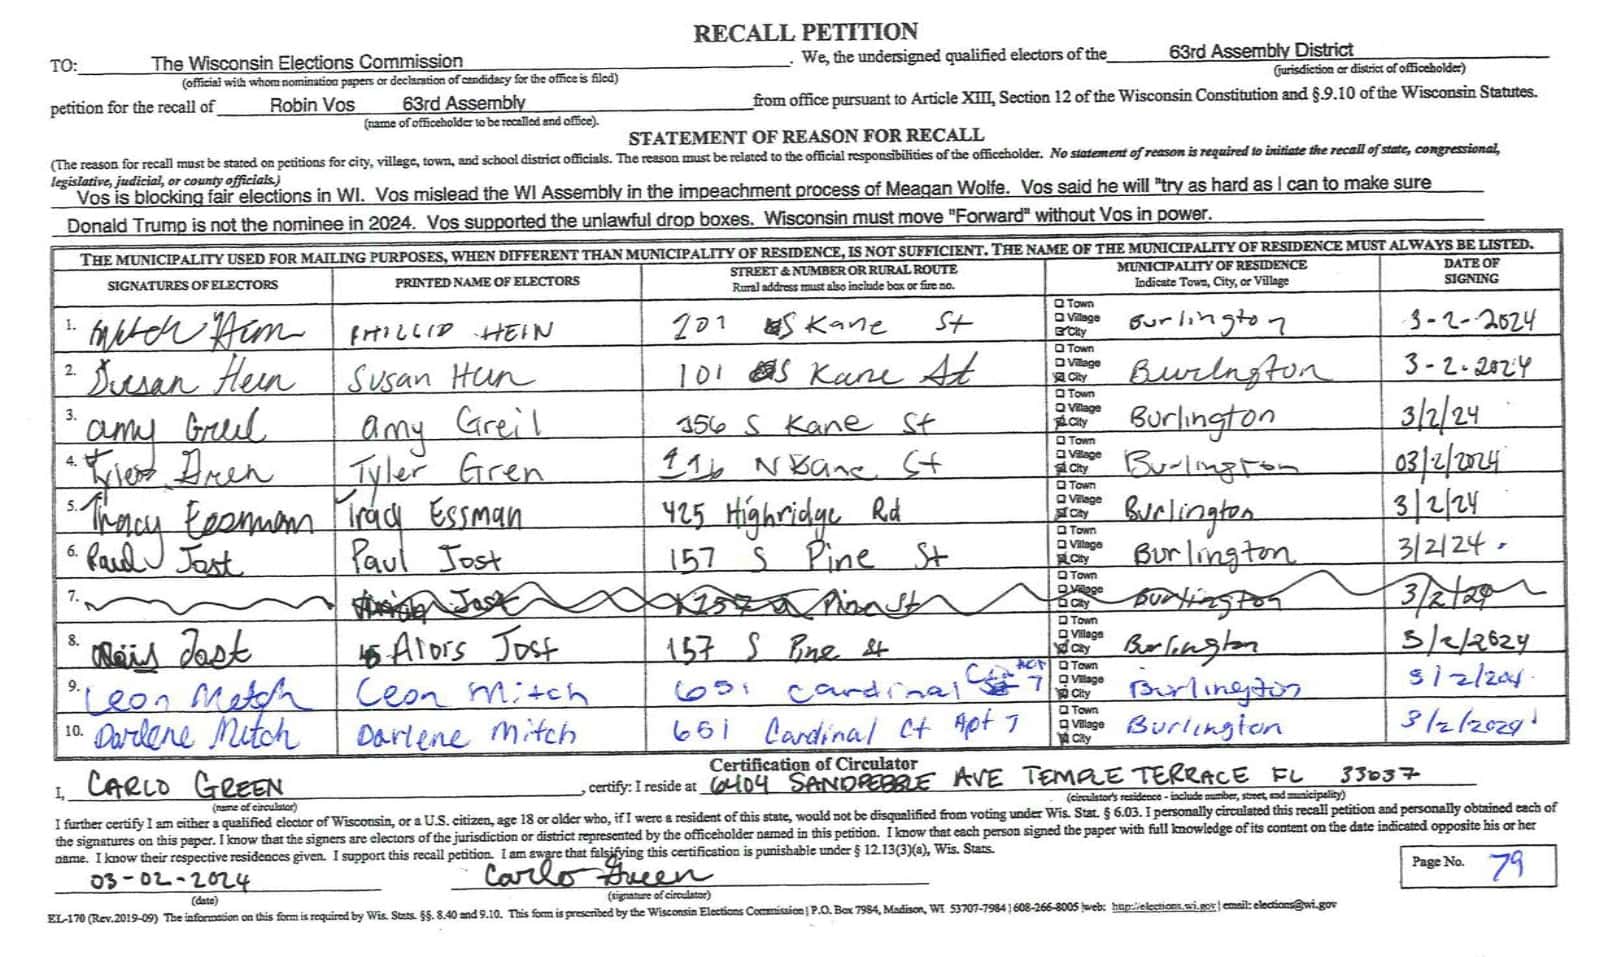 RECALL PETITION
TO: The Wisconsin Elections Commission. We, the undersigned qualified electors of the 63rd Assembly District
(official with whom nomination papers or declaration of candidacy for the office is filed) (jurisdiction or district of officeholder)
petition for the recall of Robin Vos 63rd Assembly from office pursuant to Article XIII, Section 12 of the Wisconsin Constitution and §.9.10 of the Wisconsin Statutes.
(name of officeholder to be recalled and office).
STATEMENT OF REASON FOR RECALL
(The reason for recall must be stated on petitions for city, village, town, and school district officials. The reason must be related to the official responsibilities of the officeholder. No statement of reason is required to initiate the recall of state, congressional,
legislative, judicial, or county officials.)
Vos is blocking fair elections in WI. Vos mislead the WI Assembly in the impeachment process of Meagan Wolfe. Vos said he will "try as hard as I can to make sure
Donald Trump is not the nominee in 2024. Vos supported the unlawful drop boxes. Wisconsin must move "Forward" without Vos in power.
THE MUNICIPALITY USED FOR MAILING PURPOSES, WHEN DIFFERENT THAN MUNICIPALITY OF RESIDENCE, IS NOT SUFFICIENT. THE NAME OF THE MUNICIPALITY OF RESIDENCE MUST ALWAYS BE LISTED.
SIGNATURES OF ELECTORS PRINTED NAME OF ELECTORS STREET & NUMBER OR RURAL ROUTE MUNICIPALITY OF RESIDENCE DATE OF
Rural address must also include box or fire no. Indicate Town, City, or Village SIGNING
Town
1. Hein PHILLIP HEIN 201 S Kane St Village Burlington 3-2-2024
City
Town
2. Susan Hein Susan Hein 101 S Kane St Village Burlington 3-2-2024
City
Town
3. Amy Greil Amy Greil 356 S Kane St Village Burlington 3/2/24
City
Town
4. Tyler Gren Tyler Gren 116 N Kane St Village Burlington 03/2/2024
City
Town
5. Tracy Essmam Tracy Essman 425 Highridge Rd Village Burlington 3/2/24
City
Town
6. Paul Jost Paul Jost 157 S Pine St Village Burlington 3/2/24
City
Town
7. Jost 157 Pine St Village Burlington 3/2/24
City
Town
8. Jost Alois Jost 157 S Pine St Village Burlington 3/2/2024
City
Town
9. Leon Metch Leon Mitch 651 Cardinal Ct Apt 7 Village Burlington 3/2/2024
City
Town
10. Darlene Mitch Darlene Mitch 651 Cardinal Ct Apt 7 Village Burlington 3/2/2024
City
Certification of Circulator
I, CARLO GREEN, certify: I reside at 6404 SANDPEBBLE AVE TEMPLE TERRACE FL 33637
(name of circulator) (circulator's residence - include number, street, and municipality)
I further certify I am either a qualified elector of Wisconsin, or a U.S. citizen, age 18 or older who, if I were a resident of this state, would not be disqualified from voting under Wis. Stat. § 6.03. I personally circulated this recall petition and personally obtained each of
the signatures on this paper. I know that the signers are electors of the jurisdiction or district represented by the officeholder named in this petition. I know that each person signed the paper with full knowledge of its content on the date indicated opposite his or her
name. I know their respective residences given. I support this recall petition. I am aware that falsifying this certification is punishable under § 12.13(3)(a), Wis. Stats.
03-02-2024 Carlo Green Page No. 79
(date) (signature of circulator)
EL-170 (Rev.2019-09) The information on this form is required by Wis. Stats. §§. 8.40 and 9.10. This form is prescribed by the Wisconsin Elections Commission | P.O. Box 7984, Madison, WI 53707-7984 | 608-266-8005 |web: http://elections.wi.gov | email: elections@wi.gov